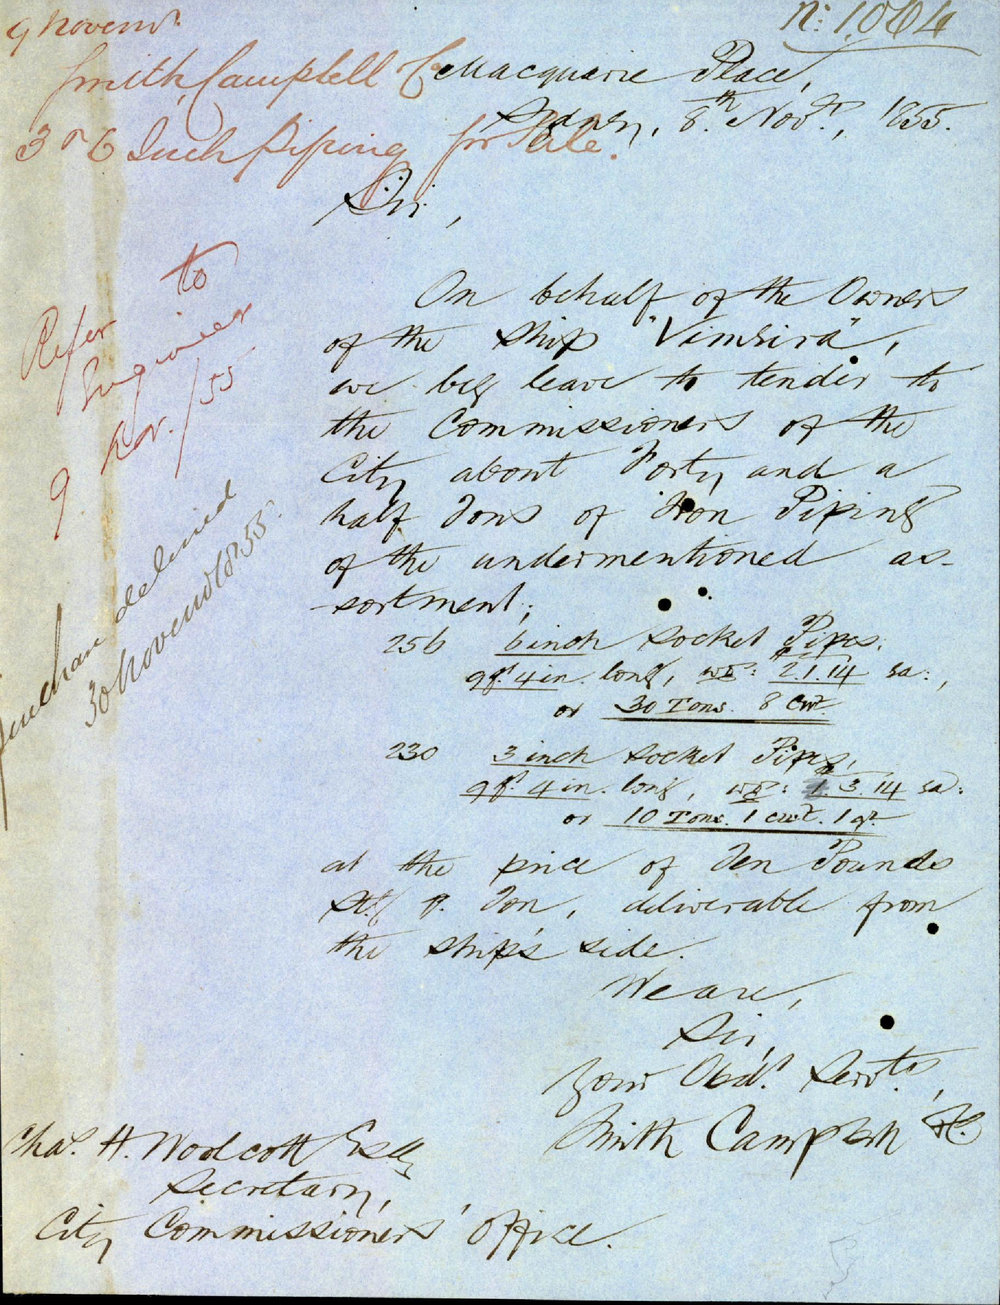 9 Novemr.
No. 1.064
Smith, Campbell & Co
Macquarie Place,
Sydney, 8th Novr., 1855.
3 & 6 Inch Piping for Sale.
Sir,
Refer to
Engineer
9 Nov. / 55
On behalf of the Owners
of the Ship "Vimeira",
we beg leave to tender to
the Commissioners of the
City about Forty and a
half Tons of Iron Piping
of the undermentioned as-
-sortment;
declined
30 Novemr 1855.
256 6 inch Socket Pipes.
9ft. 4 in. long, wg: 2.1.14 ea:,
or 30 Tons. 8 cwt.
230 3 inch Socket Pipes,
9ft. 4 in. long, wg: 3.14 ea:
or 10 Tons. 1 cwt. 1 qr.
at the price of Ten Pounds
Stg p. Ton, deliverable from
the ship's side.
We are,
Sir,
Your Obdt. Servts.,
Smith Campbell & Co.
Chas. H. Woolcott Esq
Secretary,
City Commissioners' Office.